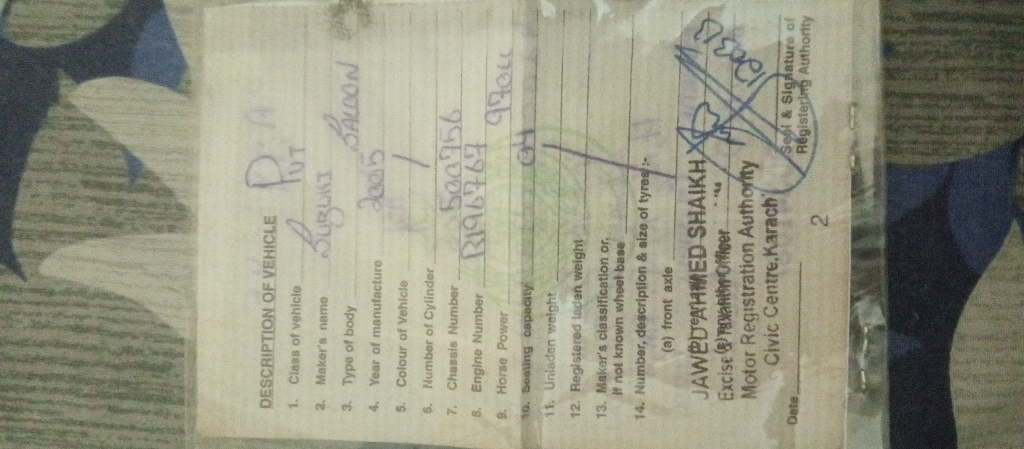 DESCRIPTION OF VEHICLE
1. Class of vehicle
2. Maker's name Suzuki
3. Type of body Saloon
4. Year of manufacture 2005
5. Colour of Vehicle
6. Number of Cylinder
7. Chassis Number 500756
8. Engine Number
9. Horse Power
10. Seating capacity 04
11. Unladen weight
12. Registered laden weight
13. Maker's classification or,
if not known wheel base
14. Number, description & size of tyres :-
(a) front axle
JAWED AHMED SHAIKH
Excise & Taxation Officer
Motor Registration Authority
Civic Centre, Karachi
Seal & Signature of
Registering Authority
Date
2